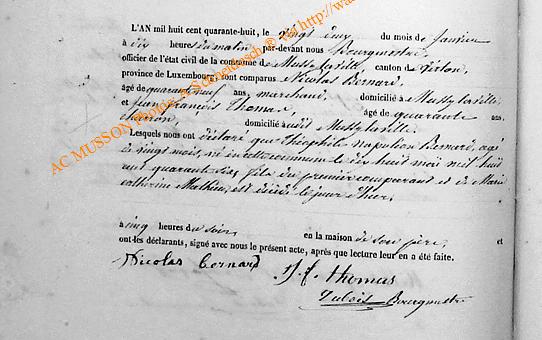 L'AN mil huit cent quarante-huit, le vingt deux du mois de Janvier
à dix heures du matin par-devant nous Bourgmestre
officier de l'état civil de la commune de Mussy la ville, canton de Virton,
province de Luxembourg, sont comparus Nicolas Bernard,
âgé de quarante neuf ans, marchand, domicilié à Mussy la ville
et Jean françois Thomas, âgé de quarante ans,
domicilié audit Mussy la ville.
Lesquels nous ont déclaré que Théophile napoléon Bernard, agé
de vingt mois, né en cette commune le dix huit mai mil huit
cent quarante six, fils du premier comparant et de Marie
catherine Mathieu, est décédé le jour d'hier,
à cinq heures du soir, en la maison de son père, et
ont-les déclarants, signé avec nous le présent acte, après que lecture leur en a été faite.
Nicolas Bernard J. f. thomas
Bourgmestre
AC MUSSON
http://www